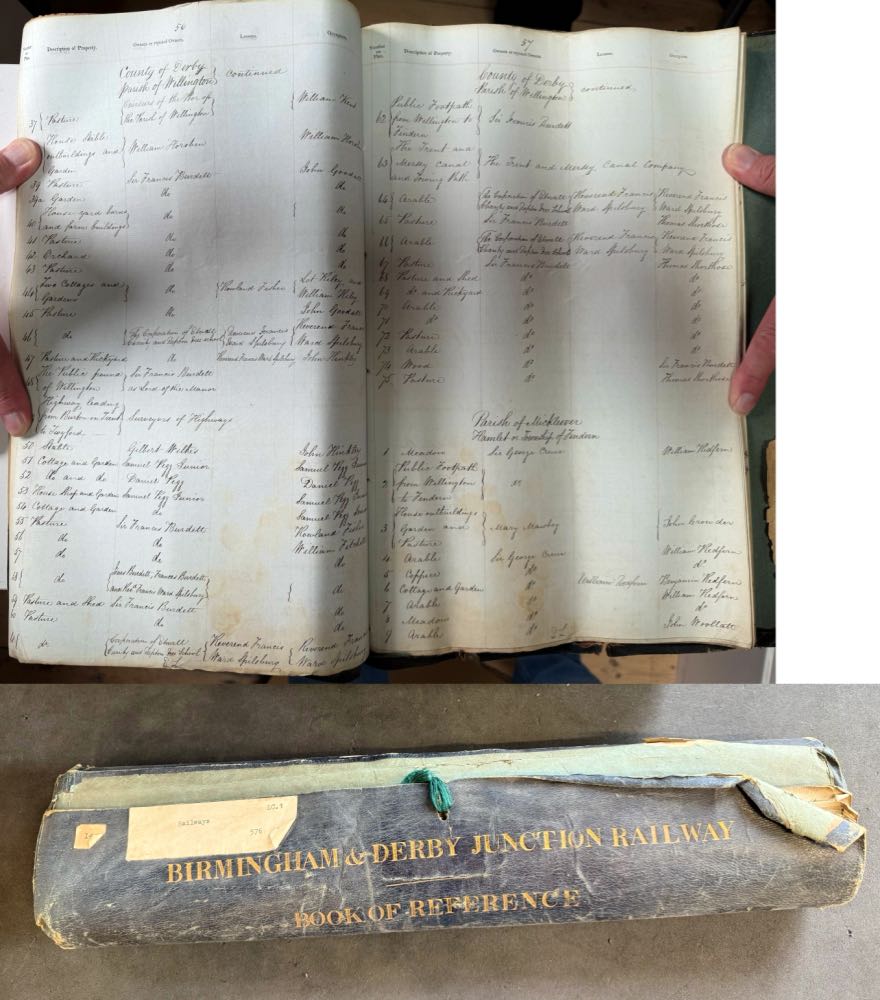 56
Number on Plan. Description of Property. Owners or reputed Owners. Lessees. Occupiers.
County of Derby
Parish of Willington } continued
37 { Pasture { the Poor of the Parish of Willington { William
House Stable outbuildings and Garden } William Horsben William
39 Pasture Sir Francis Burdett John Goodall
39a Garden do do
40 { House yard barns and farm buildings } do
41 Pasture do do
42 Orchard do do
43 Pasture do do
44 { Two Cottages and Gardens } do { Rowland Fisher { and William Kiby
45 Pasture do John Goodall
46 { do { The Corporation of Etwall Charity and Repton Free School { Reverend Francis Ward Spilsbury { Reverend Francis Ward Spilsbury
47 Pasture and Rickyard do Reverend Francis Ward Spilsbury John Hinkley
48 { The Public pound of Willington } Sir Francis Burdett as Lord of the Manor
Highway leading from Burton on Trent to Twyford } Surveyors of Highways
50 Stable Gilbert Wilkes John Hinkley
51 Cottage and Garden Samuel Pegg Junior Samuel Pegg Junior
52 do and do Daniel Pegg Daniel Pegg
53 House Shop and Garden Samuel Pegg Junior Samuel Pegg
54 Cottage and Garden do Samuel Pegg
55 Pasture Sir Francis Burdett Rowland Fisher
56 do do William
57 do do do
58 do { Francis Burdett, and Revd Francis Ward Spilsbury } { do
59 Pasture and Shed Sir Francis Burdett do
60 Pasture do do
61 do { Corporation of Etwall Charity and Repton Free School { Reverend Francis Ward Spilsbury { Reverend Francis Ward Spilsbury
57
Number on Plan. Description of Property. Owners or reputed Owners. Lessees. Occupiers.
County of Derby
Parish of Willington } continued
62 { Public Footpath from Willington to Findern { Sir Francis Burdett
63 { The Trent and Mersey Canal and Towing Path { The Trent and Mersey Canal Company
64 { Arable { The Corporation of Etwall Charity and Repton Free School { Reverend Francis Ward Spilsbury { Reverend Francis Ward Spilsbury
65 Pasture Sir Francis Burdett Thomas
66 { Arable { The Corporation of Etwall Charity and Repton Free School { Reverend Francis Ward Spilsbury { Reverend Francis Ward Spilsbury
67 Pasture Sir Francis Burdett Thomas
68 Pasture and Shed do do
69 do and Rickyard do do
70 Arable do do
71 do do do
72 Pasture do do
73 Arable do do
74 Wood do Sir Francis Burdett
75 Pasture do Thomas
Parish of Mickleover
Hamlet or Township of Findern
1 Meadow Sir George Crewe William Redfern
2 { Public Footpath from Willington to Findern } do
3 { House outbuildings Garden and Pasture } Mary Mawbey { John Crowder
4 Arable Sir George Crewe William Redfern
5 Coppice do do
6 Cottage and Garden do William Redfern Benjamin Redfern
7 Arable do William Redfern
8 Meadow do do
9 Arable do John Woollatt
Railways
LC.1
576
BIRMINGHAM & DERBY JUNCTION RAILWAY
BOOK OF REFERENCE